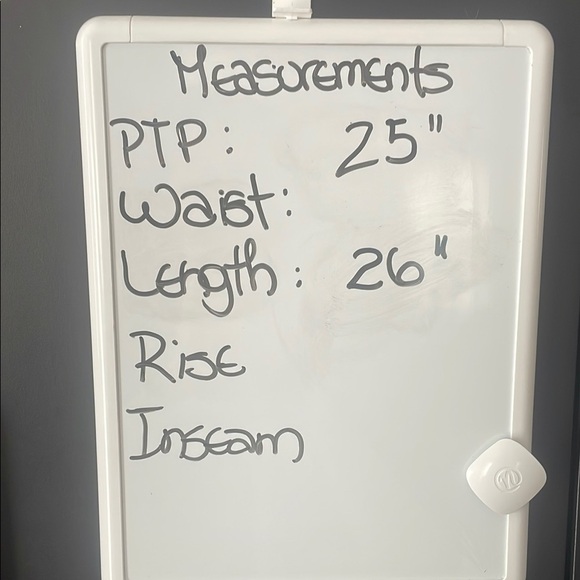 Measurements
PTP: 25"
Waist:
Length: 26"
Rise
Inseam